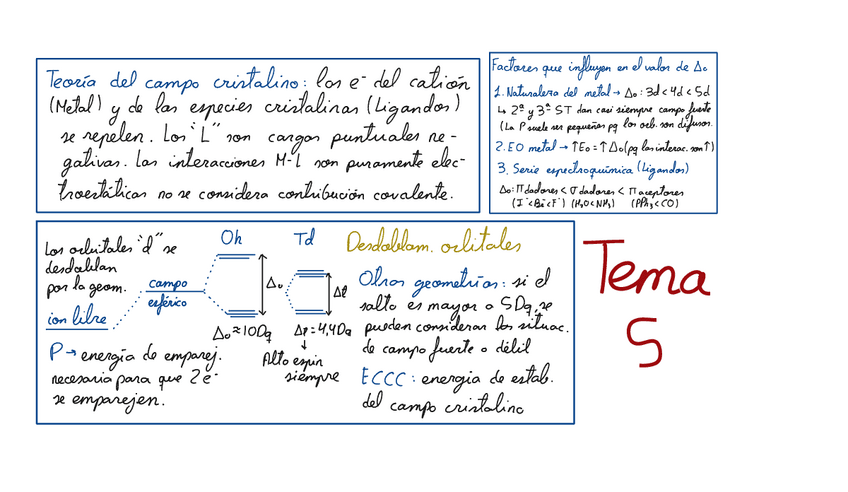 Teoría del campo cristalino: los e⁻ del catión
(Metal) y de las especies cristalinas (Ligandos)
se repelen. Los "L" son cargas puntuales ne-
gativas. Las interacciones M-L son puramente elec-
troestáticas no se considera contribución covalente.
Factores que influyen en el valor de Δo
1. Naturaleza del metal → Δo: 3d < 4d < 5d
↳ 2ª y 3ª ST dan casi siempre campo fuerte
(La P suele ser pequeña pq los orb. son difusos.
2. EO metal → ↑Eo = ↑Δo (pq las interac. son ↑)
3. Serie espectroquímica (Ligandos)
Δo: π dadores < σ dadores < π aceptores
(I⁻<Br⁻<F⁻) (H₂O<NH₃) (PPh₃<CO)
Los orbitales "d" se
desdoblan
por la geom.
ion libre
campo
esférico
Oh
Td
Δo
Δt
Δo ≈ 10Dq
Δt = 4,4Dq
↓
Alto espín
siempre
P → energía de emparej.
necesaria para que 2e⁻
se emparejen.
Desdoblam. orbitales
Otras geometrías: si el
salto es mayor a 5Dq se
pueden considerar las situac.
de campo fuerte o débil
ECCC: energía de estab.
del campo cristalino
Tema
5